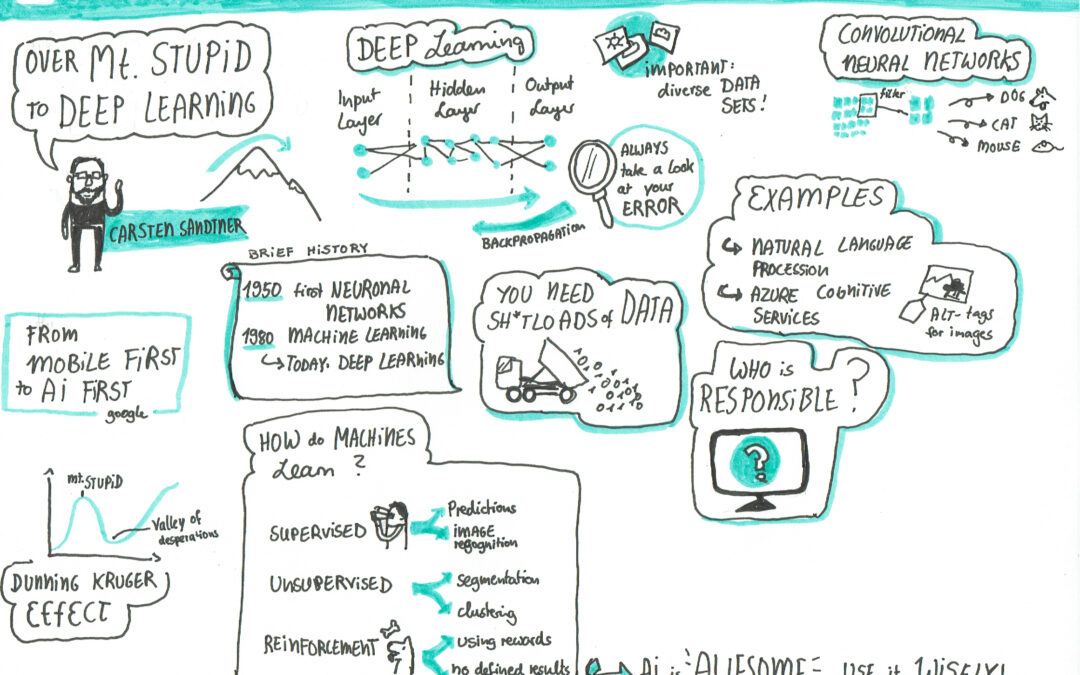 OVER Mt. STUPiD
TO DEEP LEARNiNG
CARSTEN SANDTNER
DEEP Learning
Input
Layer
Hidden
Layer
Output
Layer
BACKPROPAGATiON
iMPORTANT:
diverse DATA
SETS!
ALWAYS
take a Look
at your
ERROR
CONVOLUTiONAL
NEURAL NETWORKS
filter
DOG
CAT
MOUSE
EXAMPLES
NATURAL LANGUAGE
PROCESSION
AZURE COGNiTiVE
SERViCES
ALT-tags
for images
BRiEF HiSTORY
1950 first NEURONAL
NETWORKS
1980 MACHiNE LEARNiNG
TODAY. DEEP LEARNiNG
YOU NEED
SH*TLOADS of DATA
WHO is
RESPONSiBLE?
?
FROM
MOBiLE FiRST
to Ai FiRST
google
mt.STUPiD
Valley of
desperations
DUNNiNG KRUGER
EFFECT
HOW do MACHiNES
Learn?
SUPERViSED
Predictions
iMAGE
regognition
UNSUPERViSED
segmentation
clustering
REiNFORCEMENT
using rewards
no defined results
Ai is AWESOME USE it WiSELY!